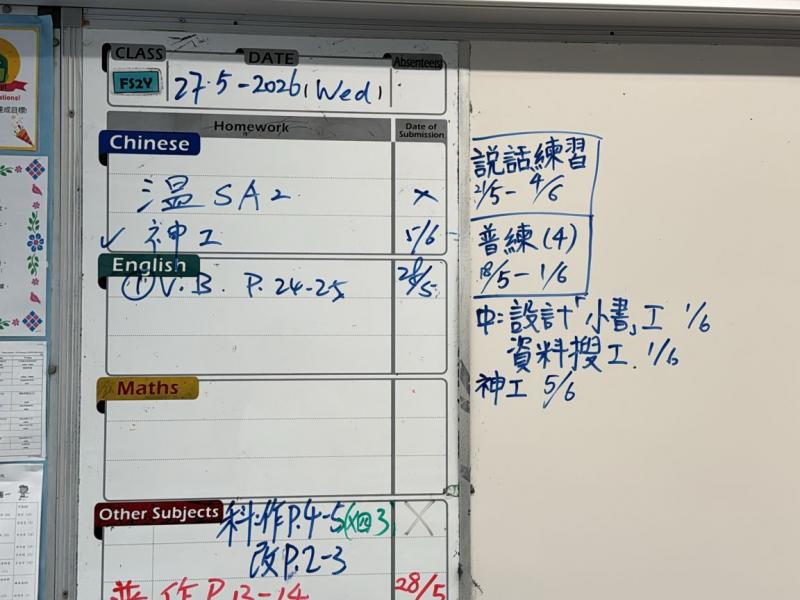 CLASS DATE Absentee(s)
FS2Y 27.5-2026(Wed)
Homework Date of Submission
Chinese
溫 SA2 ×
✓ 神工 5/6
English
① V.B. P.24-25 28/5
Maths
Other Subjects
科.作P.4-5 ×
改P.2-3
普.作P.13-14 28/5
説話練習
21/5- 4/6
普練(4)
18/5- 1/6
中:設計「小書」工 1/6
資料搜工. 1/6
神工 5/6